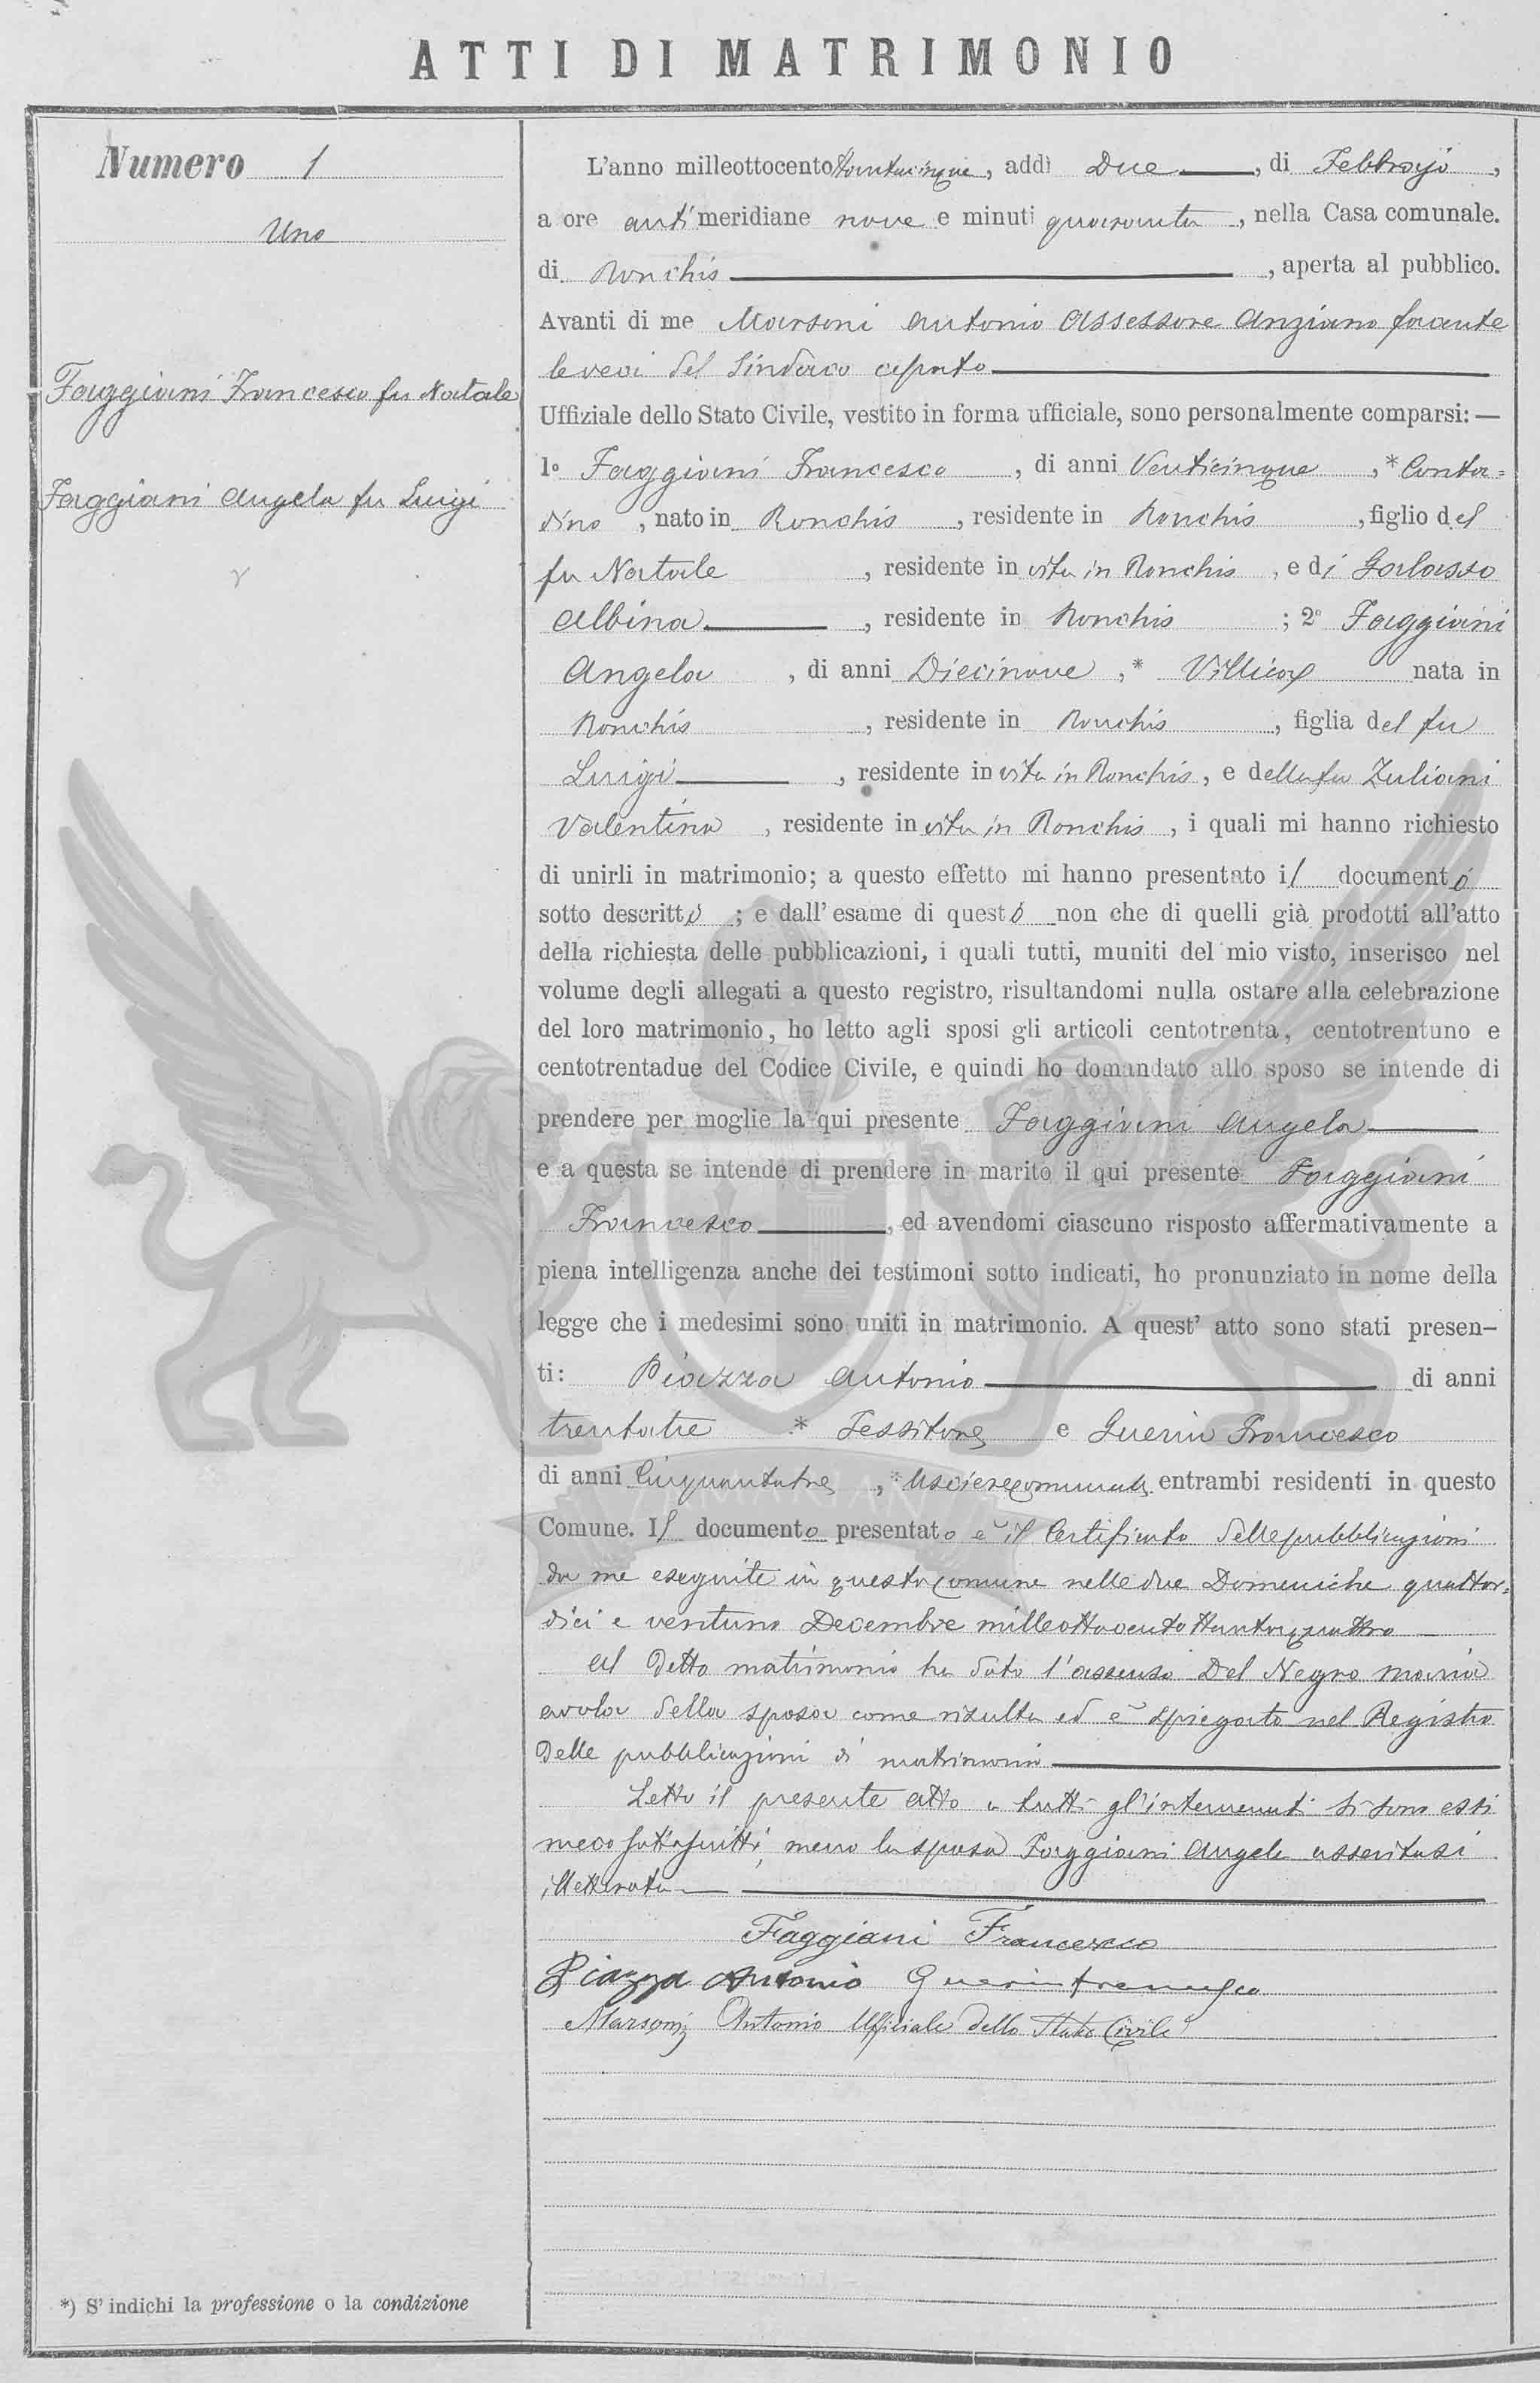 ATTI DI MATRIMONIO
Numero 1
Uno
Faggiani Francesco fu Natale
Faggiani Angela fu Luigi
L'anno milleottocentottantacinque, addì Due, di Febbrajo,
a ore anti meridiane nove e minuti quaranta, nella Casa comunale.
di Ronchis, aperta al pubblico.
Avanti di me Marsoni Antonio Assessore Anziano facente
le veci del Sindaco
Uffiziale dello Stato Civile, vestito in forma ufficiale, sono personalmente comparsi: —
1º Faggiani Francesco, di anni Venticinque, * Conta=
dino, nato in Ronchis, residente in Ronchis, figlio del
fu Natale, residente in vita in Ronchis, e di Galasso
Albina, residente in Ronchis; 2º Faggiani
Angela, di anni Diecinove, * Villica nata in
Ronchis, residente in Ronchis, figlia del fu
Luigi, residente in vita in Ronchis, e della fu Zuliani
Valentina, residente in vita in Ronchis, i quali mi hanno richiesto
di unirli in matrimonio; a questo effetto mi hanno presentato il documento
sotto descritto; e dall' esame di questo non che di quelli già prodotti all'atto
della richiesta delle pubblicazioni, i quali tutti, muniti del mio visto, inserisco nel
volume degli allegati a questo registro, risultandomi nulla ostare alla celebrazione
del loro matrimonio, ho letto agli sposi gli articoli centotrenta, centotrentuno e
centotrentadue del Codice Civile, e quindi ho domandato allo sposo se intende di
prendere per moglie la qui presente Faggiani Angela
e a questa se intende di prendere in marito il qui presente Faggiani
Francesco, ed avendomi ciascuno risposto affermativamente a
piena intelligenza anche dei testimoni sotto indicati, ho pronunziato in nome della
legge che i medesimi sono uniti in matrimonio. A quest' atto sono stati presen-
ti: Piazza Antonio di anni
trentatre * Tessitore e Guerin Francesco
di anni Cinquantatre, * Usciere comunale entrambi residenti in questo
Comune. Il documento presentato è il Certificato delle pubblicazioni
da me eseguite in questo Comune nelle due Domeniche quattor=
dici e ventuno Decembre milleottocentottantaquattro
Al detto matrimonio ha dato l'assenso Del Negro Maria
avola della sposa come risulta ed è spiegato nel Registro
delle pubblicazioni di matrimonio
Letto il presente atto a tutti gl'intervenuti si sono essi
meco sottoscritti, meno la sposa Faggiani Angela asseritasi
illetterata
Faggiani Francesco
Piazza Antonio Guerin Francesco
Marsoni Antonio Ufficiale dello Stato Civile
*) S' indichi la professione o la condizione